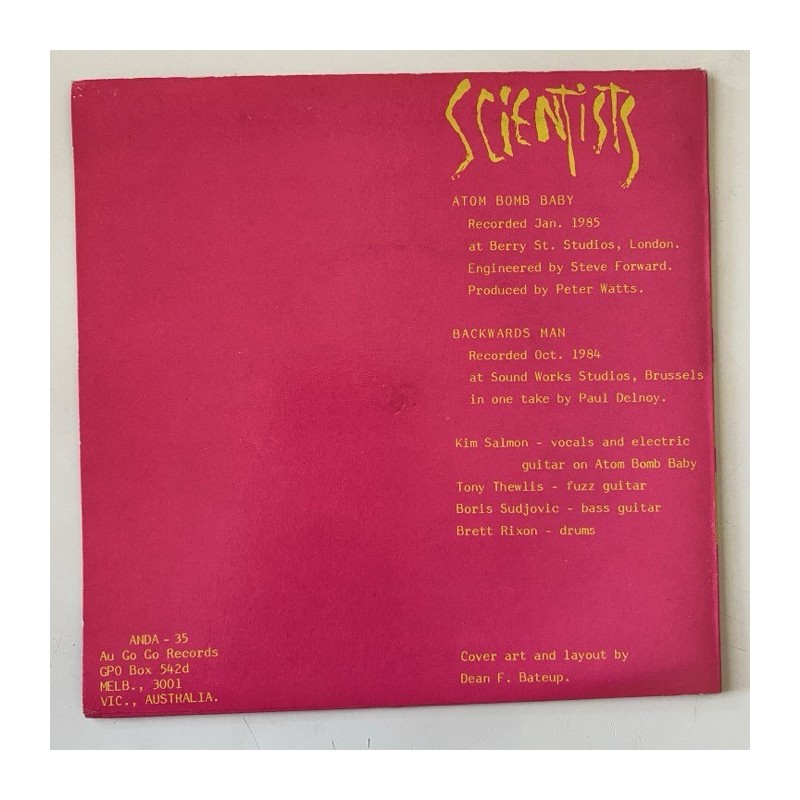 SCIENTISTS
ATOM BOMB BABY
Recorded Jan. 1985
at Berry St. Studios, London.
Engineered by Steve Forward.
Produced by Peter Watts.
BACKWARDS MAN
Recorded Oct. 1984
at Sound Works Studios, Brussels
in one take by Paul Delnoy.
Kim Salmon - vocals and electric
guitar on Atom Bomb Baby
Tony Thewlis - fuzz guitar
Boris Sudjovic - bass guitar
Brett Rixon - drums
ANDA - 35
Au Go Go Records
GPO Box 542d
MELB., 3001
VIC., AUSTRALIA.
Cover art and layout by
Dean F. Bateup.